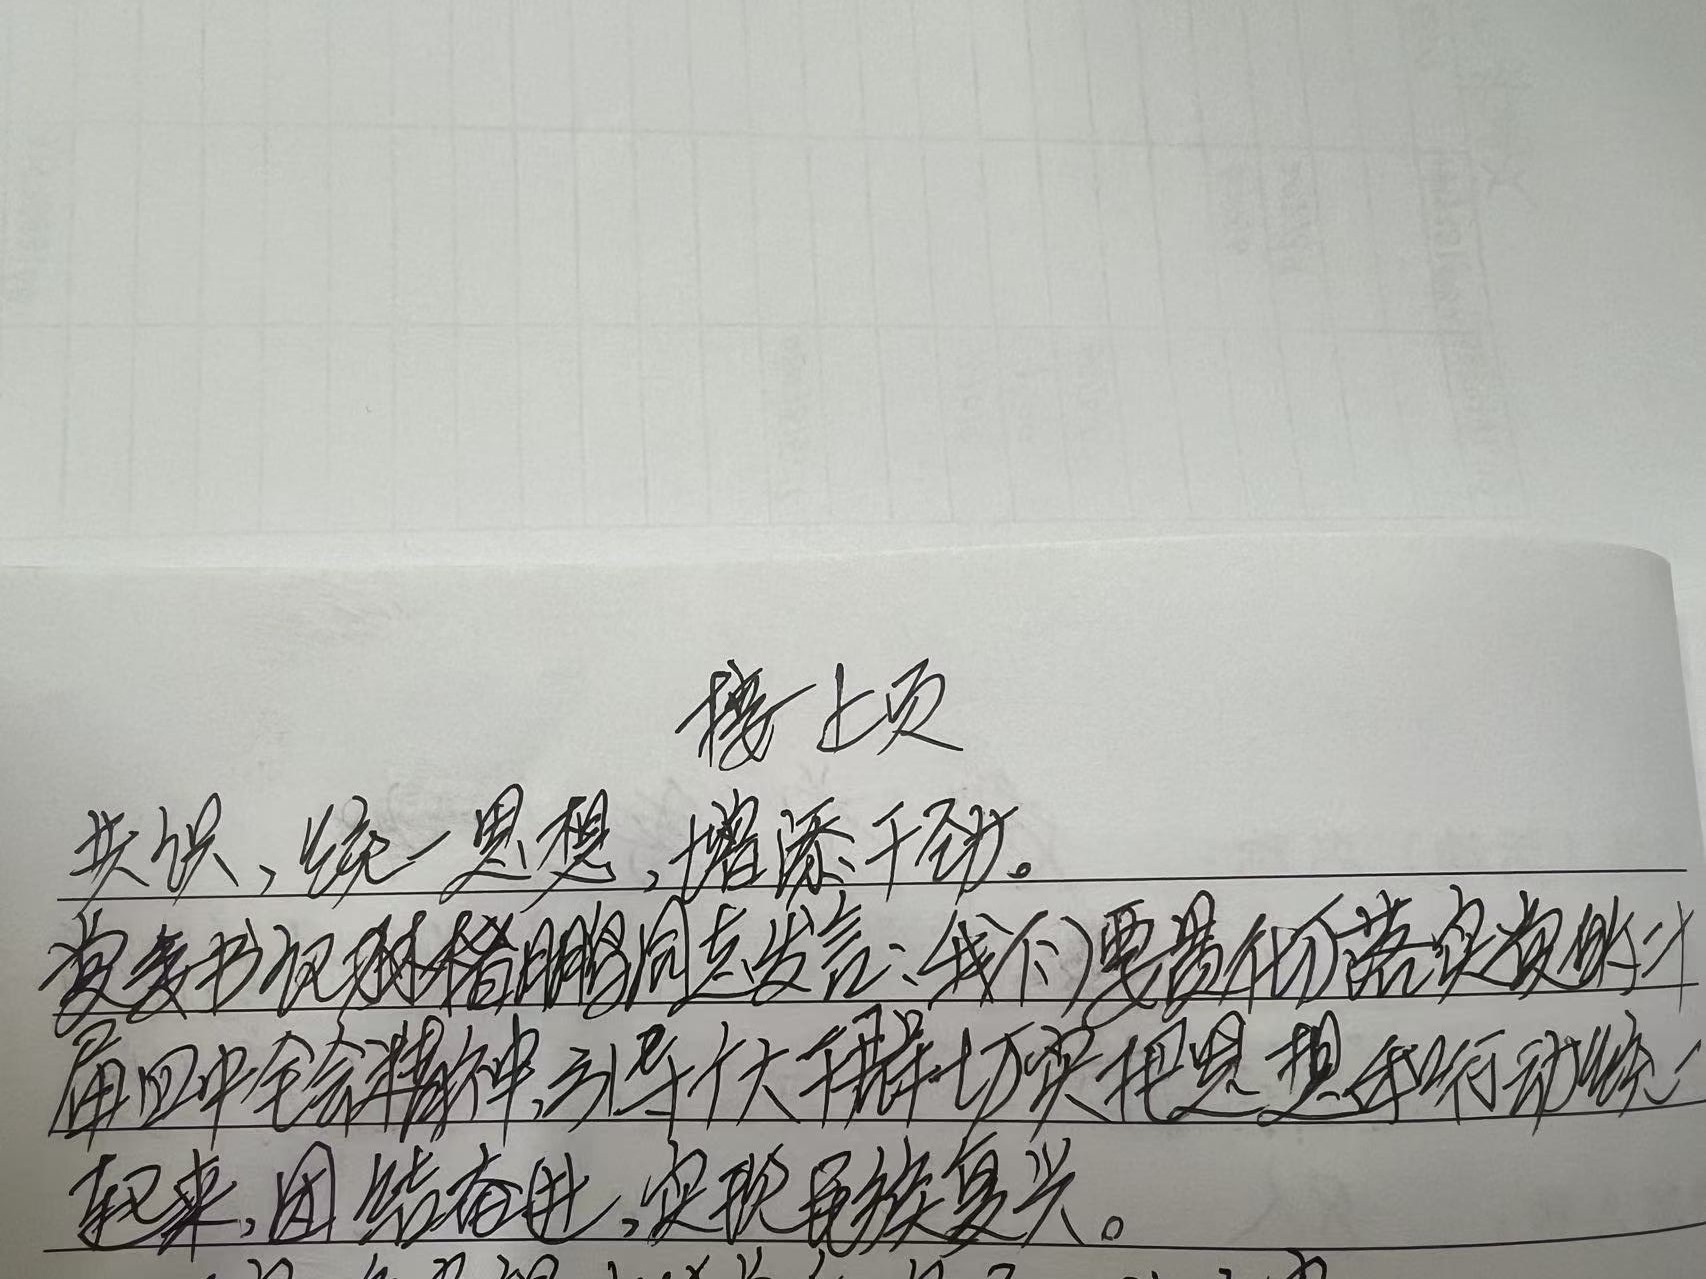 接上页
共识,统一思想,增添干劲。
党委书记林格鹏同志发言:我们要贯彻落实党的二十
届四中全会精神,引导广大干群切实把思想和行动统一
起来,团结奋进,实现民族复兴。